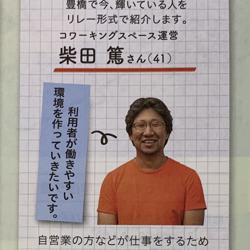 豊橋で今、輝いている人を
リレー形式で紹介します。
コワーキングスペース運営
柴田 篤さん(41)
利用者が働きやすい
環境を作っていきたいです。
自営業の方などが仕事をするため